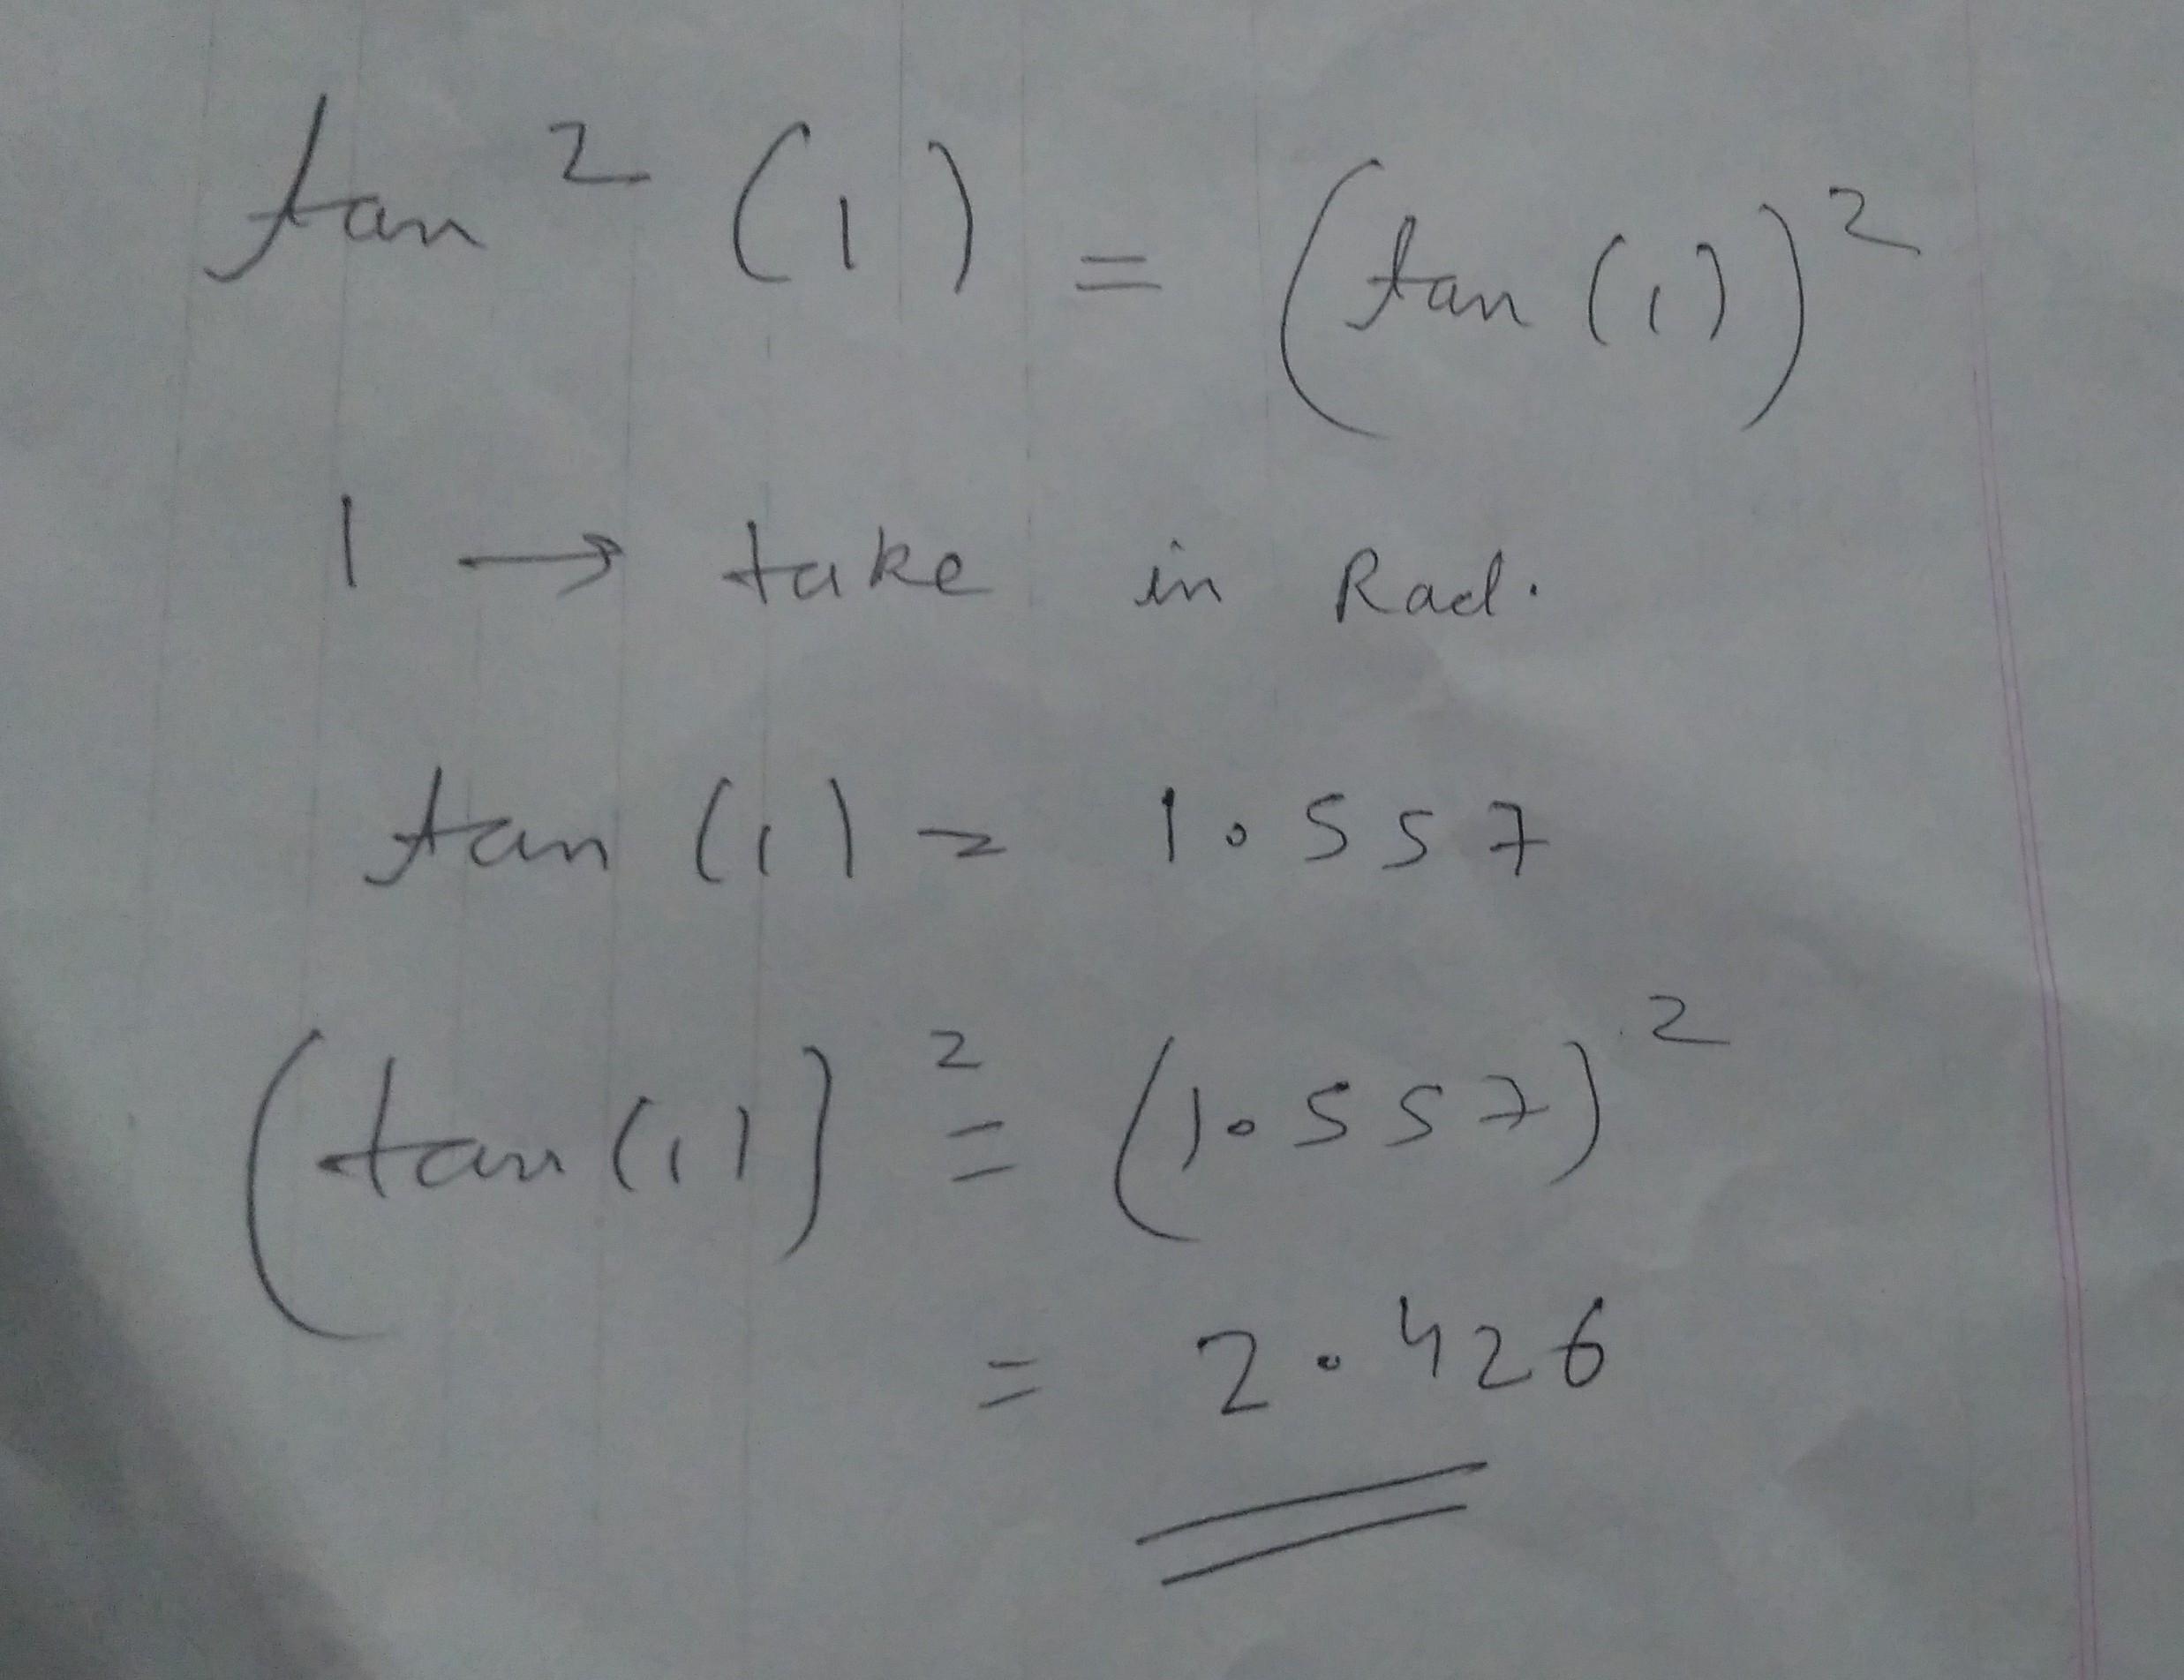 tan² (1) = (tan (1))²
1 → take in Rad.
tan (1) = 1.557
(tan(1))² = (1.557)²
= 2.426